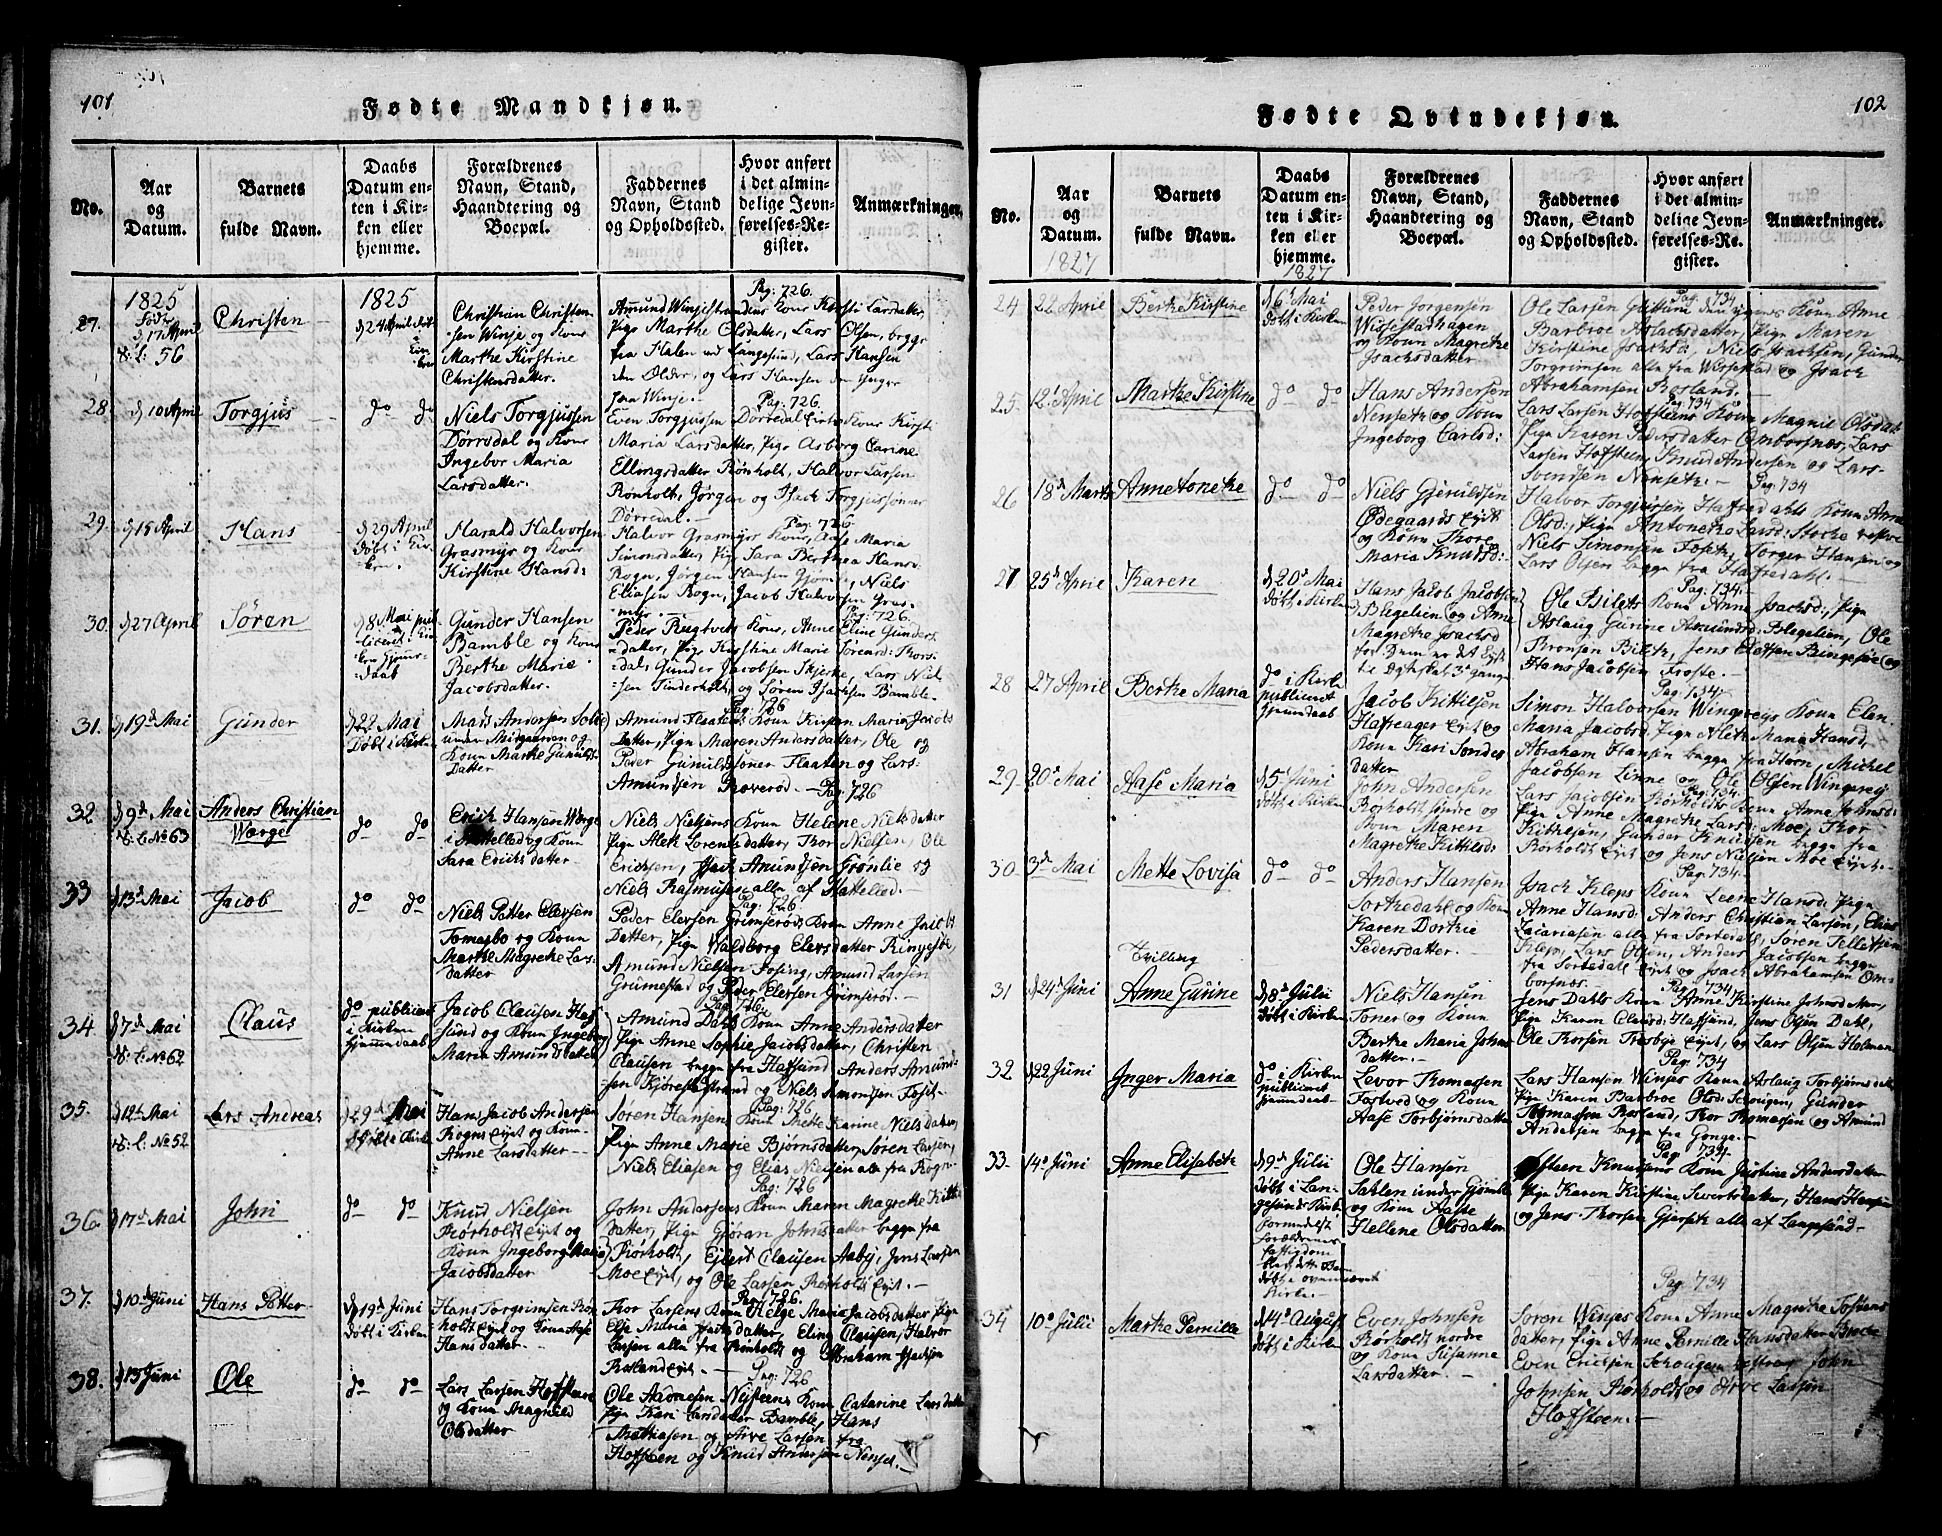 101
Fødte Mandkjøn.
No.
Aar
og
Datum.
Barnets
fulde Navn.
Daabs
Datum en-
ten i Kir-
ken eller
hjemme.
Forældrenes
Navn, Stand,
Haandtering og
Boepæl.
Faddernes
Navn, Stand
og Opholdssted.
Hvor anført
i det almin-
delige Jevn-
førelses-Re-
gister.
Anmærkninger.
27.
1825
17 April
56
Christen
1825
24 April
Christian Christen
sen Winje og Kone
Marthe Kirstine
Christensdatter.
Pag: 726.
Pige Marthe Olsdatter, Lars Olsen, begge
fra Halen ved Langesund, Lars Hansen
den Ælder, og Lars Hansen den Ynger
fra Winje.
28.
10 April
Torgjus
do do
Niels Torgjussen
Dørredal og Kone
Ingebor Maria
Larsdatter.
Pag: 726.
Even Torgjussen Dørredal
Maria Larsdatter, Pige Asborg Carine
Ellingsdatter Rønholt, Halvor Larsen
Rønholt, Jørgen og Isach Torgjussønner
Dørredal.
29.
15 April
Hans
29 April
Døbt i Kir-
ken.
Harald Halvorsen
Grasmyr og Kone
Kirstine Hansd:
Pag: 726.
Halvor Grasmyrs Kone, Aase Maria
Simonsdatter, Pige Sara Berthea Hans
Rogn, Jørgen Hansen Gjømle, Niels
Eliasen Rogn, Jacob Halvorsen Gras-
myr.
30.
27 April
Søren
8 Mai
Gunder Hansen
Bamble og Kone
Berthe Marie
Jacobsdatter.
Pag: 726.
Peder Rugtvets Kone, Anne Eline Gunders-
datter, Pige Kirstine Marie Sørensd: Thors-
dal, Gunder Jacobsen Skjerke, Lars Niel
sen Tinderholt, og Søren Isachsen Bamble.
31.
19 Mai
Gunder
22 Mai
Døbt i Kirken
Mads Andersen
Kone Marthe Gunulds
datter
Pag: 726
Amund Flaatens Kone Kirsten Maria Jacobs
datter, Pige Maren Andersdatter, Ole og
Peder Gunuldssøner Flaaten og Lars
Amundsen Røverød.
32.
9de Mai
No 63
Anders Christian
Worge
do do
Erich Hansen Worge
i Hatteløed og Koun
Sara Erichsdatter
Pag: 726
Niels Nielsens Koun Helene Nielsdatter
Pige Alet Lorensdatter, Thor Nielsen, Ole
Erichsen, Isach Amundsen Grønlie og
Niels Rasmusen alle af Hatteløed.
33
13d Mai
Jacob
do do
Niels Petter Elevsen
Tomasbo og Koun
Marthe Magrethe Lars-
datter
Pag: 726.
Peder Elevsen Grimserød, Koun Anne Jacobs
datter, Pige Waldborg Elevsdatter Ringesbe,
Amund Nielsen Fosing, Amund Larsen
Grumestad og Peder Elevsen Grimserød.
34.
7d Mai
No 62
Claus
do publiceret
i Kirken
hjemmedaab
Jacob Clausen Haf
sund og Koun Ingeborg
Maria Amundsdatter
Pag: 726
Amund Dahls Koun Anne Andersdatter
Pige Anne Sophie Jacobsdatter, Christen
Clausen begge fra Hafsund Anders Amund-
sen Kjørestrand og Niels Simonsen Foset.
35.
12te Mai
No 52
Lars Andreas
29d Mai
Hans Jacob Andersen
Rogns Eiet og Koun
Anne Larsdatter
Pag: 726
Søren Hansens Koun Mette Karine Nielsdatter,
Pige Anne Marie Bjørnsdatter, Søren Larsen,
Niels Eliasen og Elias Nielsen alle fra Rogn
36.
17d Mai
John
do do
Knud Nielsen
Rørholt Eiet og
Koun Ingeborg Maria
Jacobsdatter
Pag: 726
John Andersens Koun Maren Magrethe Kittils
datter, Pige Gjøran Johnsdatter begge fra
Rørholt, Ejlert Clausen Aaby, Jens Larsen
Moe Eiet, og Ole Larsen Rørholt Eiet.
37.
10d Juni
Hans Petter
19d Juni
Døbt i Kirken
Hans Torgrimsen Rør
holt Eiet og Koun Aase
Hans datter.
Pag: 726.
Thor Larsens Koun Helge Maria Jacobsdatter Pige
Else Maria Isachsdatter, Eling Clausen, Halvor
Larsen alle fra Rønholt og Abraham Isachsen
Rosland Eiet.
38.
13 Juni
Ole
do do
Lars Larsen Hofsteen
og Koun Magnild
Olsdatter
Pag: 726
Ole Andresens Nejsteens Koun Catarine Larsdatter
Pige Kari Larsdatter Bamble, Hans
Mathiasen og Arve Larsen fra
Hofsteen og Knud Andersen Nenset.
102
Fødte Qvindekjøn.
No.
Aar
og
Datum.
1827
Barnets
fulde Navn.
Daabs
Datum en-
ten i Kir-
ken eller
hjemme.
1827
Forældrenes
Navn, Stand,
Haandtering og
Boepæl.
Faddernes
Navn, Stand
og Opholdssted.
Hvor anført
i det almin-
delige Jevn-
førelses-Re-
gister.
Anmærkninger.
24
22 April
Berthe Kirstine
6te Mai
Døbt i Kirken
Peder Jørgensen
Wissestadhagen
og Koun Magrethe
Isachsdatter
Pag: 734
Barbroe Aslachsdatter, Pige Maren
Kirstine Isachsd: Niels Isachsen, Gunder
Torgrimsen alle fra Wissestad og Isach
Abrahamsen Rosland.
25.
12te April
Marthe Kirstine
do do
Hans Andersen
Nenseth og Koun
Ingeborg Carlsd:
Pag: 734
Lars Larsen Hofsteens Koun Magnil Olsdat
Pige Karen Pedersdatter Omborsnæs, Lars
Larsen Hofsteen, Knud Andersen og Lars
Svendsen Nenseth.
26
18d Marts
Anne Tonethe
do do
Niels Gjeruldsen
Ødegaards Eiet
og Koun Thore
Maria Knudsd:
Pag: 734
Halvor Torgjusen Hafredahls Koun Anne
Olsd: Pige Antonethe Larsd: Stocke vestre
Niels Simonsen Foseth, Torger Hansen og
Lars Olsen begge fra Hafredahl.
27
25d April
Karen
20d Mai
Døbt i Kirken
Hans Jacob Jacobsen
Blegelien og Anne
Magrethe Isachsd
for Dem er det Eiet
Pag: 734.
Ole Bileths Koun Anne Isachsd: Pige
Aslaug Gurine Amundsd: Blegelien, Ole
Brønsen Bileth, Jens Olettsen Bingesøe og
Hans Jacobsen Froste.
28
27 April
Berthe Maria
do i Kirke
publiceret
hjemmdaab
Jacob Kittilsen
Hafsager Eiet og
Koun Kari Tordes
datter
Pag: 734
Simon Halvorsen Wingereis Koun Elen
Maria Jacobsd. Pige Aleth Maria Hansd,
Abraham Hansen begge fra Hørn, Michel
Jacobsen Linne og Ole Olsen Wingereis
29
20d Mai
Aase Maria
5 Juni
Døbt i Kirken
John Andersen
Rørholt søndre og
Koun Maren
Magrethe Kittilsd:
Pag: 734.
Lars Jacobsen Rørholts Koun Anne Johnsd:
Pige Anne Magrethe Larsd: Moe, Thor
Kittilsen, Gunder Knudsen begge fra
Rørholt Eiet og Jens Nielsen Moe Eiet.
30
3d Mai
Mette Lovisa
do do
Anders Hansen
Torthedahl og Koun
Karen Dorthe
Pedersdatter.
Pag: 734.
Isach Kleps Koun Leene Hansd: Pige
Anne Hansd: Anders Christian Larsen,
Klep, Lars Olsen, Anders Jacobsen begge
fra Tortedal Eiet og Isach Abrahamsen Om-
borsnæs.
31
24d Juni
Tvilling
Anne Gurine
8d Julii
Døbt i Kirken
Niels Hansen
Toner og Koun
Berthe Maria Johns
datter.
Pag: 734.
Jens Dahls Koun Anne Kirstine Johnsd:
Pige Karen Clausd: Hafsund, Jens Olsen Dahl,
Ole Thorsen Trosbye Eiet, og Lars Olsen Holman
32
22 Juni
Inger Maria
do i Kirken
publiceret
hjemmdaab
Levor Thomasen
Fostved og Koun
Aase Torbjørnsdatter
Pag: 734
Lars Hansen Winjes Koun Aslaug Torbjørnsdatt
Pige Karin Barbroe Olsd: Schougen, Gunder
Thomassen Rosland, Thor Thomassen og Amund
Andersen begge fra Gonge.
33.
14d Juni
Anne Elisabeth
9de Julii
Døbt i Lan-
gesunds Kirke
formedelst
Forældrenes
Fattigdom
Døbt i ovennævnt
Kirke.
Ole Hansen
Sahlen under Gjømle
og Koun Aaste
Hellene Olsdatter
Pag: 734.
Ofsteen Knudsens Koun Justine Andersdatter
Pige Karen Kirstine Sivertsdatter, Hans Hansen
og Jens Thorsen Gjerseth alle af Langesund
34
10d Julii
Marthe Pernille
14d August
Døbt i Kirken
Even Johnsen
Rørholdt nordre
og Koun Susanne
Larsdatter.
Pag: 734
Søren Winjes Koun Anne Magrethe Tostens
datter, Pige Anne Pernille Hansdatter
Even Erichsen Schougen John
Johnsen Rørholdt og Arve Larsen
Hofsteen.